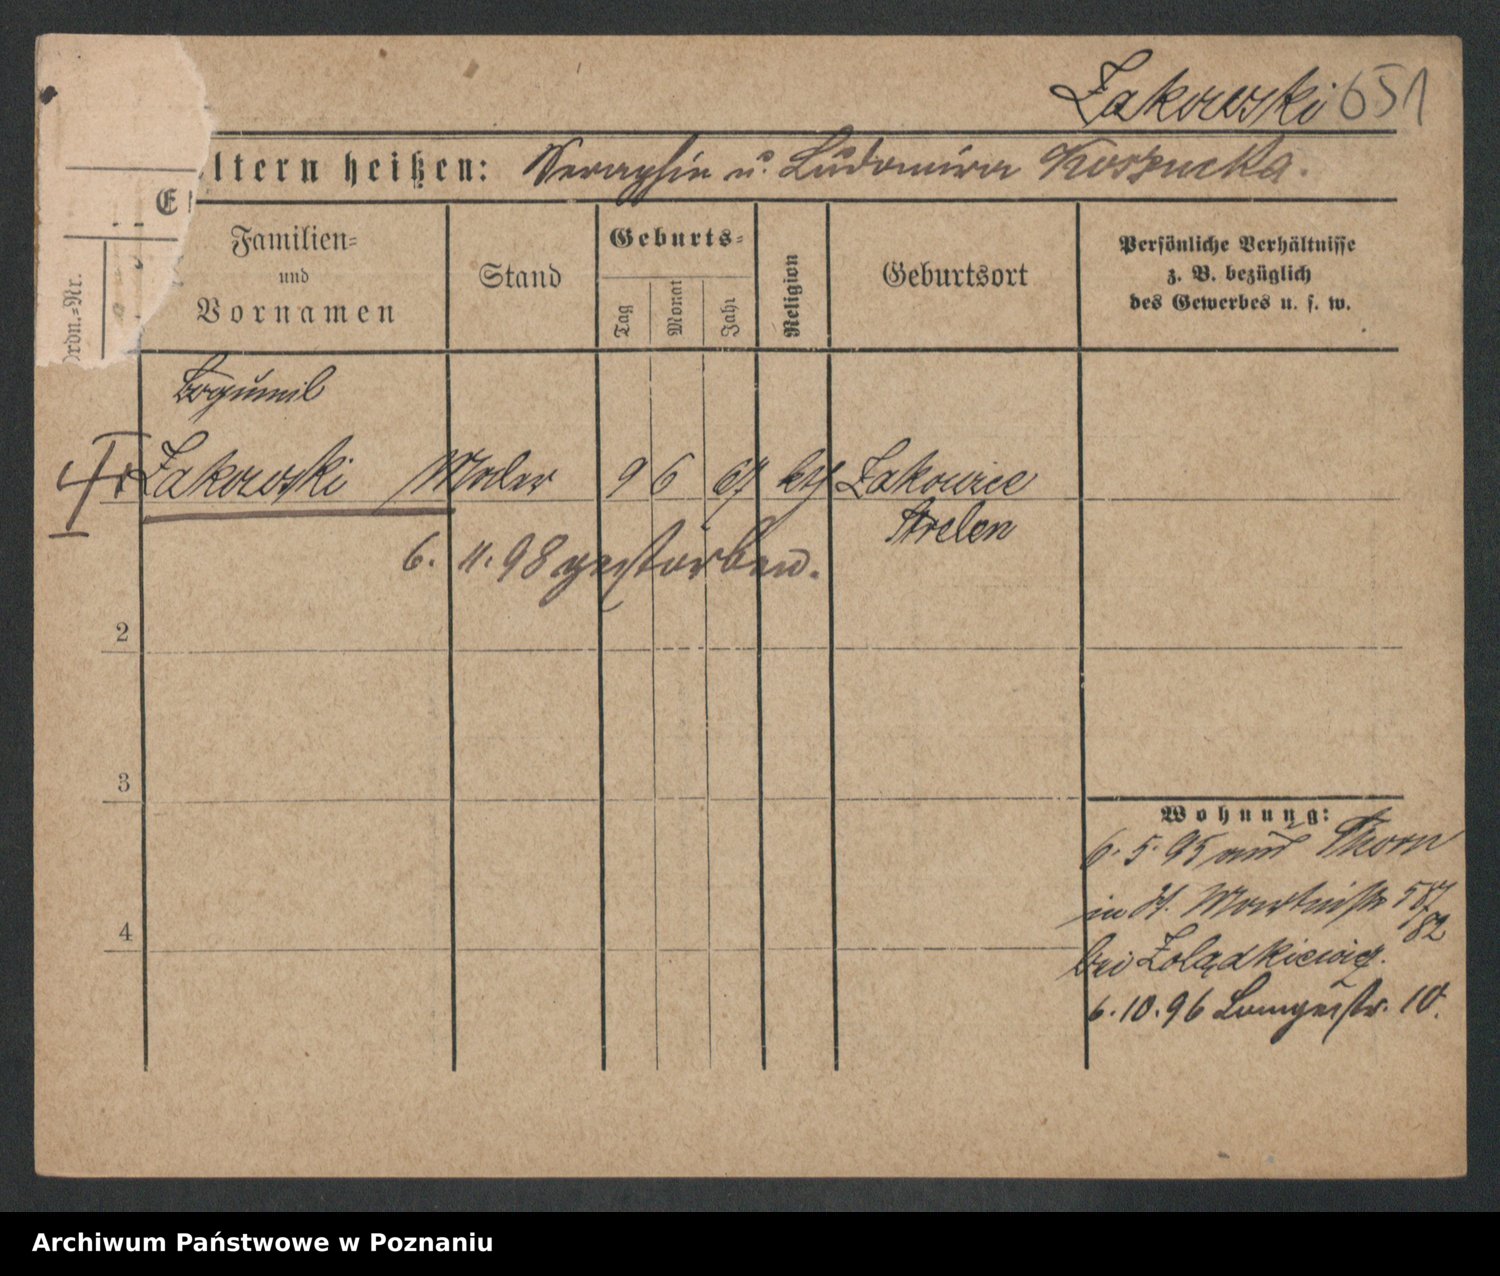 Żakowski 651
ltern heißen: Seraphin u. Ludomira Koszucka.
E
Ordn.-Nr.
Familien-
und
Vornamen
Stand
Geburts-
Tag
Monat
Jahr
Religion
Geburtsort
Persönliche Verhältnisse
z. B. bezüglich
des Gewerbes u. s. w.
Bogumil
Żakowski Maler 9 6 67 kth Żakowice
Strelen
6. 11. 98 gestorben.
2
3
4
Wohnung:
6. 5. 95 aus Thorn
in St. Martinstr 587
/82
bei Żolądkiewicz.
6. 10. 96 Langestr. 10.
Archiwum Państwowe w Poznaniu